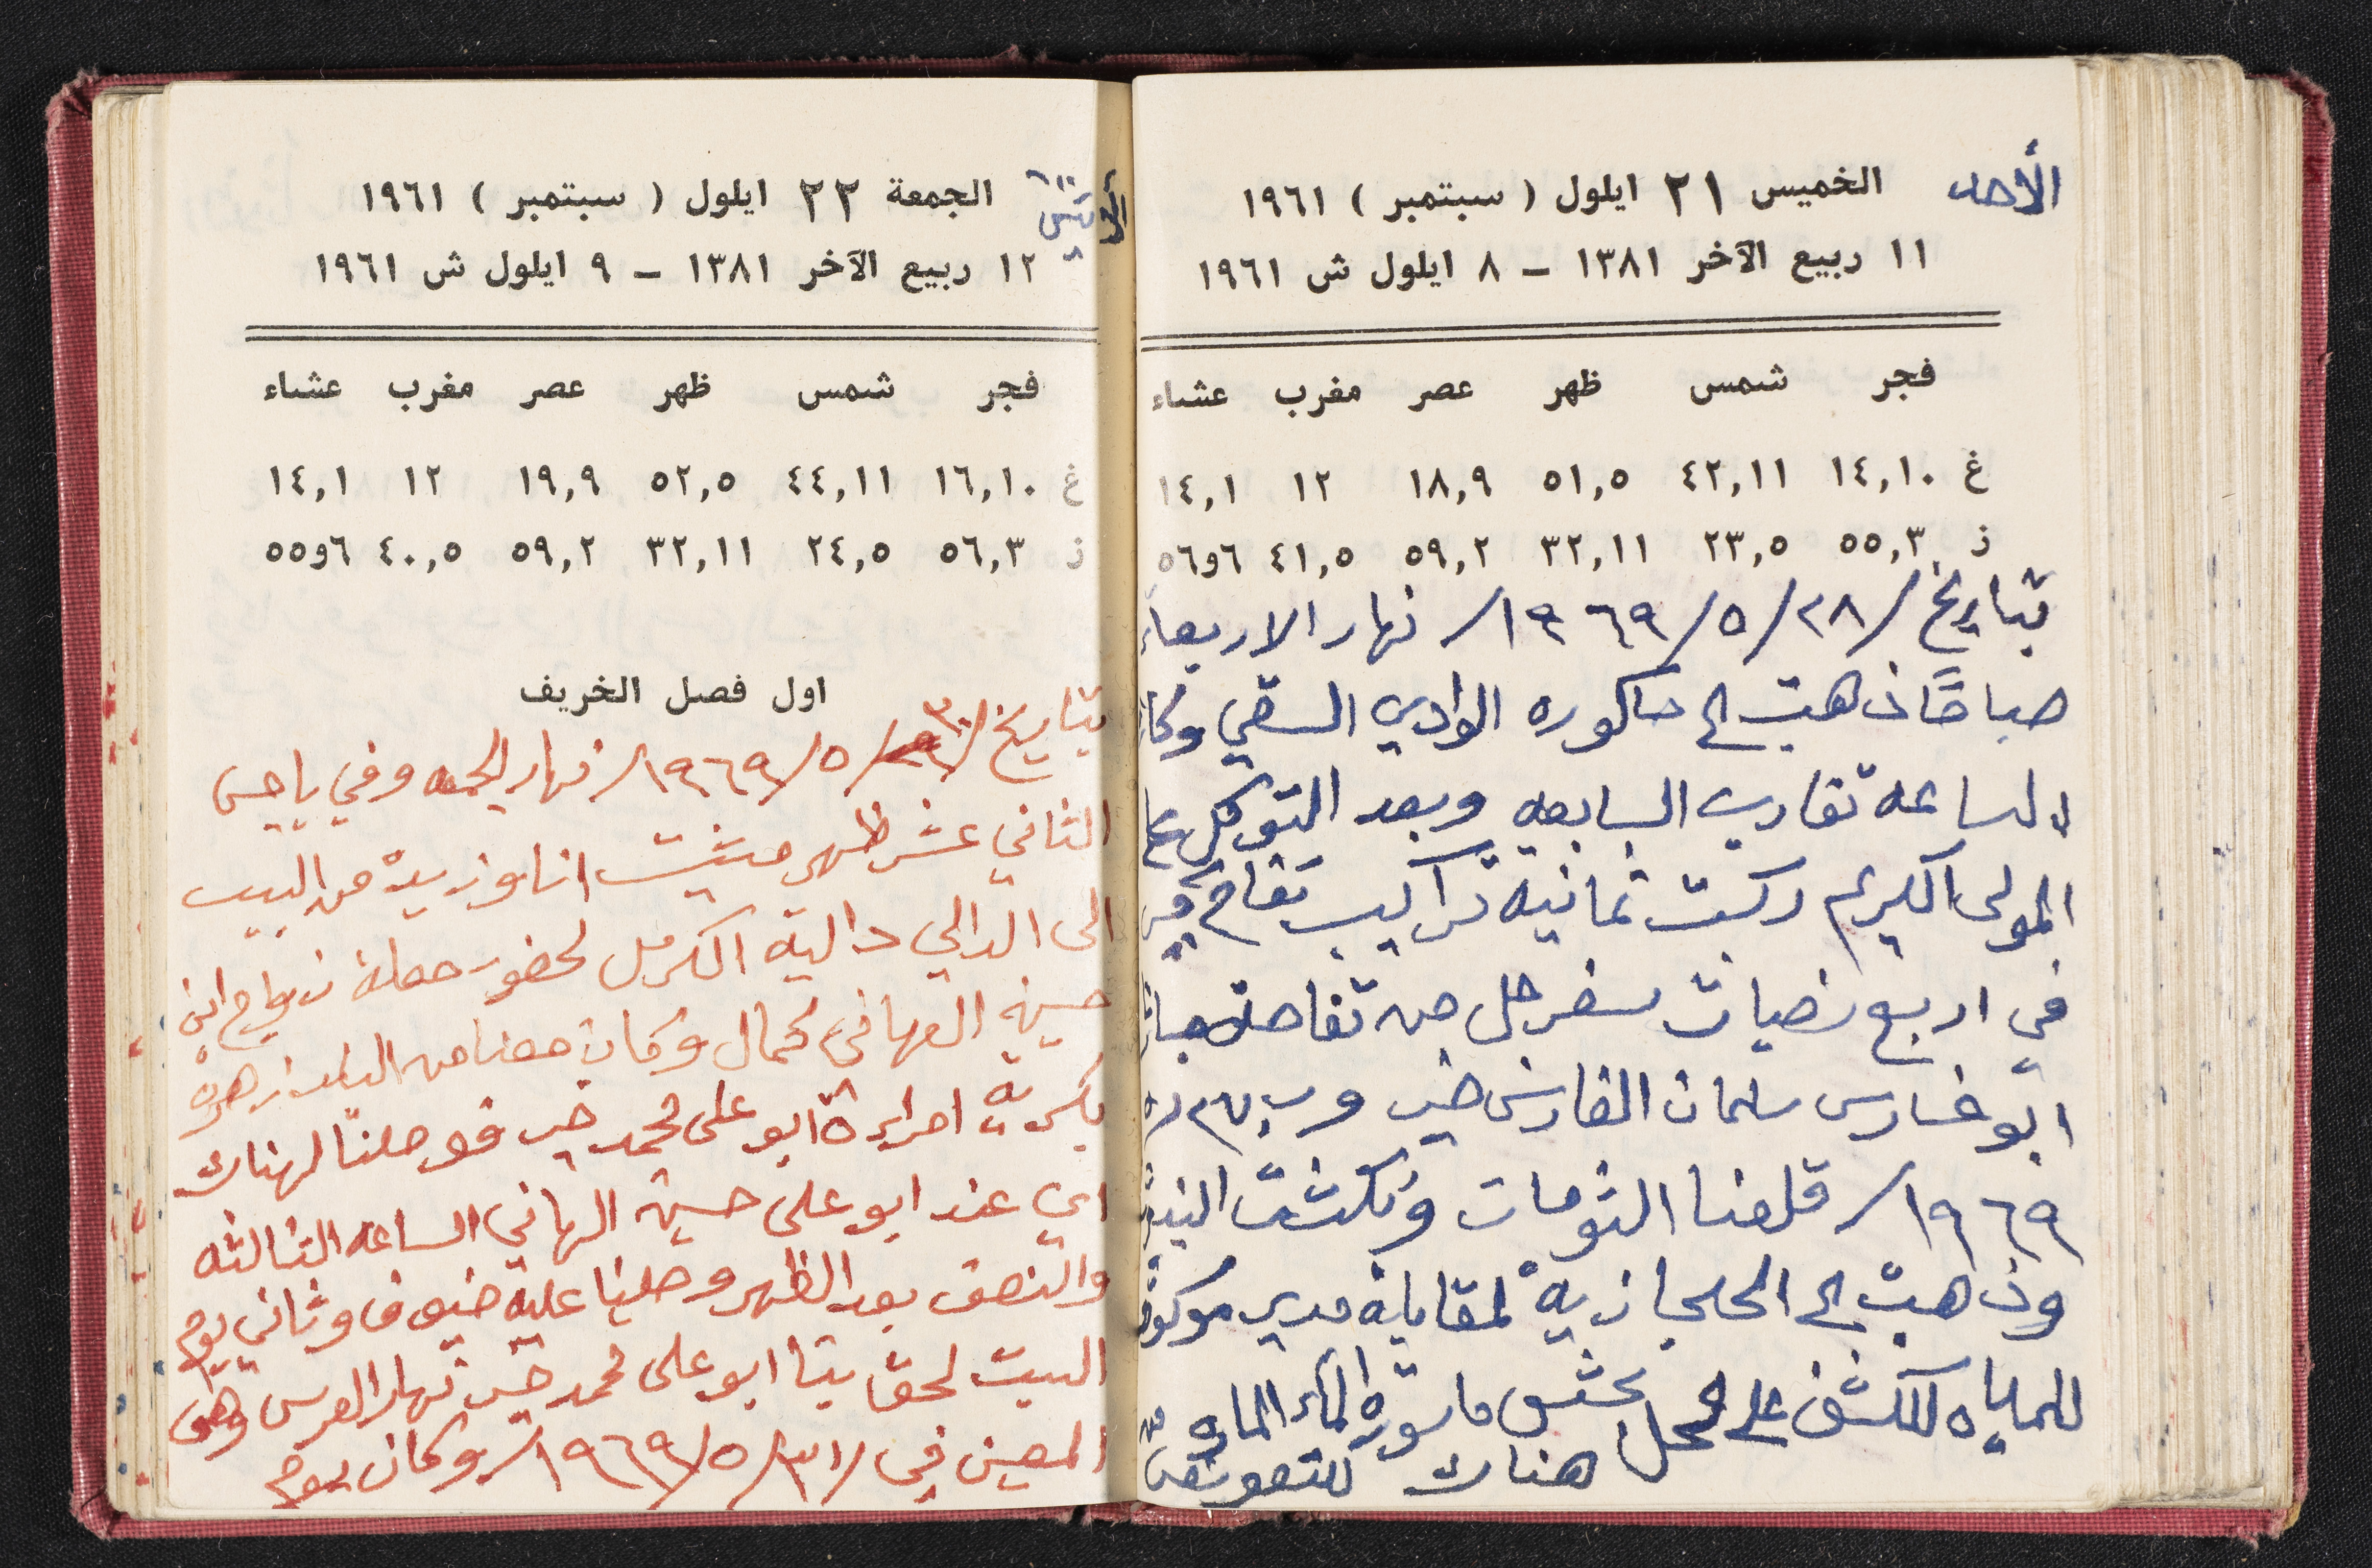 الأحد
الخميس ٢١ ايلول ( سبتمبر ) ١٩٦١
١١ ربيع الآخر ١٣٨١ ـ ٨ ايلول ش ١٩٦١
فجر شمس ظهر عصر مغرب عشاء
غ ١٤,١٠ ٤٢,١١ ٥١,٥ ١٨,٩ ١٢ ١٤,١
ذ ٥٥,٣ ٢٣,٥ ٣٢,١١ ٥٩,٢ ٤١,٥ ٦و٥٦
بتاريخ /٢٨/٥/١٩٦٩/ نهار الاربعاء
صباحًا ذهبت الى حاكوره الوادي السقي وكان
الساعه تقارب السابعه وبعد التوكل على
المولى الكريم ركبت ثمانية تراكيب تفاح
في اربع نصبات سفرجل من تفاحة
ابو فارس سلمان الفارس خير
١٩٦٩/ قلعنا الثومات ونكشت
وذهبت الى المحلجازيه لمقابلة مدير
للمياه للكشف على محل بحش ماسورة الماء الماره من
هناك للتعويض
الاثنين
الجمعة ٢٢ ايلول ( سبتمبر ) ١٩٦١
١٢ ربيع الآخر ١٣٨١ ـ ٩ ايلول ش ١٩٦١
فجر شمس ظهر عصر مغرب عشاء
غ ١٦,١٠ ٤٤,١١ ٥٢,٥ ١٩,٩ ١٢ ١٤,١
ذ ٥٦,٣ ٢٤,٥ ٣٢,١١ ٥٩,٢ ٤٠,٥ ٦و٥٥
اول فصل الخريف
بتاريخ /٣٠/٥/١٩٦٩/ نهار الجمعه وفي باص
الثاني عشر ظهر مشيت انا وزيدة من البيت
الى الدالي دالية الكرمل لحضور حفلة زواج ابن
حسين الهاني كمال وكان معنا من البلد زهوة
بكريه امراءة ابو علي محمد خير فوصلنا لهناك
اي عند ابو علي حسين الهاني الساعه الثالثه
والنصف بعد الظهر وصلنا عليه ضيوف وثاني يوم
السبت لحق بنا ابو علي محمد خير نهار العرس وهو
المعين في /٣١/٥/١٩٦٩/ وكان يوم